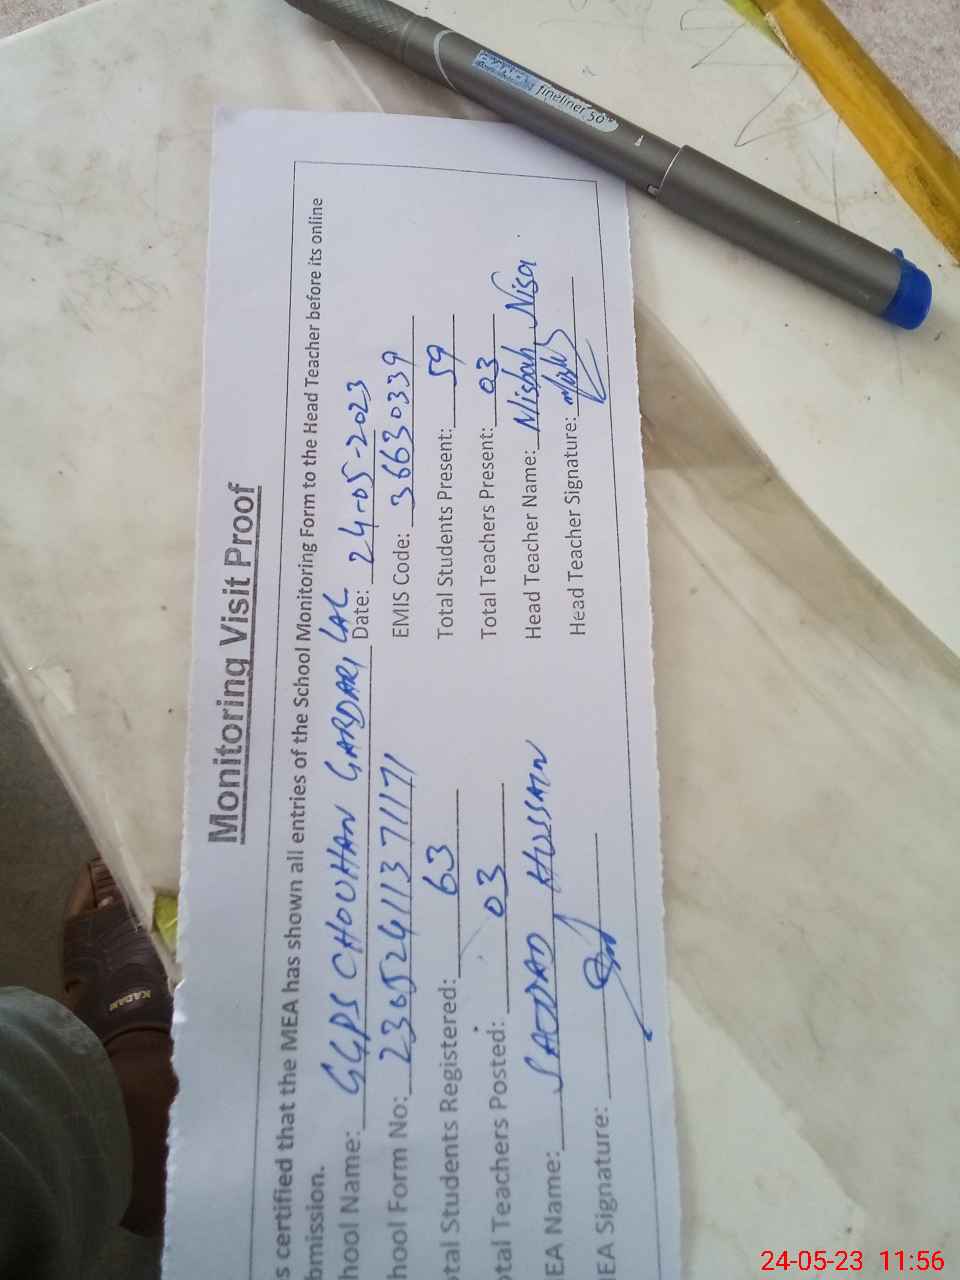 Monitoring Visit Proof
s certified that the MEA has shown all entries of the School Monitoring Form to the Head Teacher before its online
bmission.
hool Name: GGPS CHOUHAN GARDARI LAL Date: 24-05-2023
hool Form No: 23052411371171 EMIS Code: 36630339
otal Students Registered: 63 Total Students Present: 59
otal Teachers Posted: 03 Total Teachers Present: 03
EA Name: SAJJAD HUSSAIN Head Teacher Name: Misbah Nisa
EA Signature: Head Teacher Signature:
fineliner 50
KADAM
24-05-23 11:56